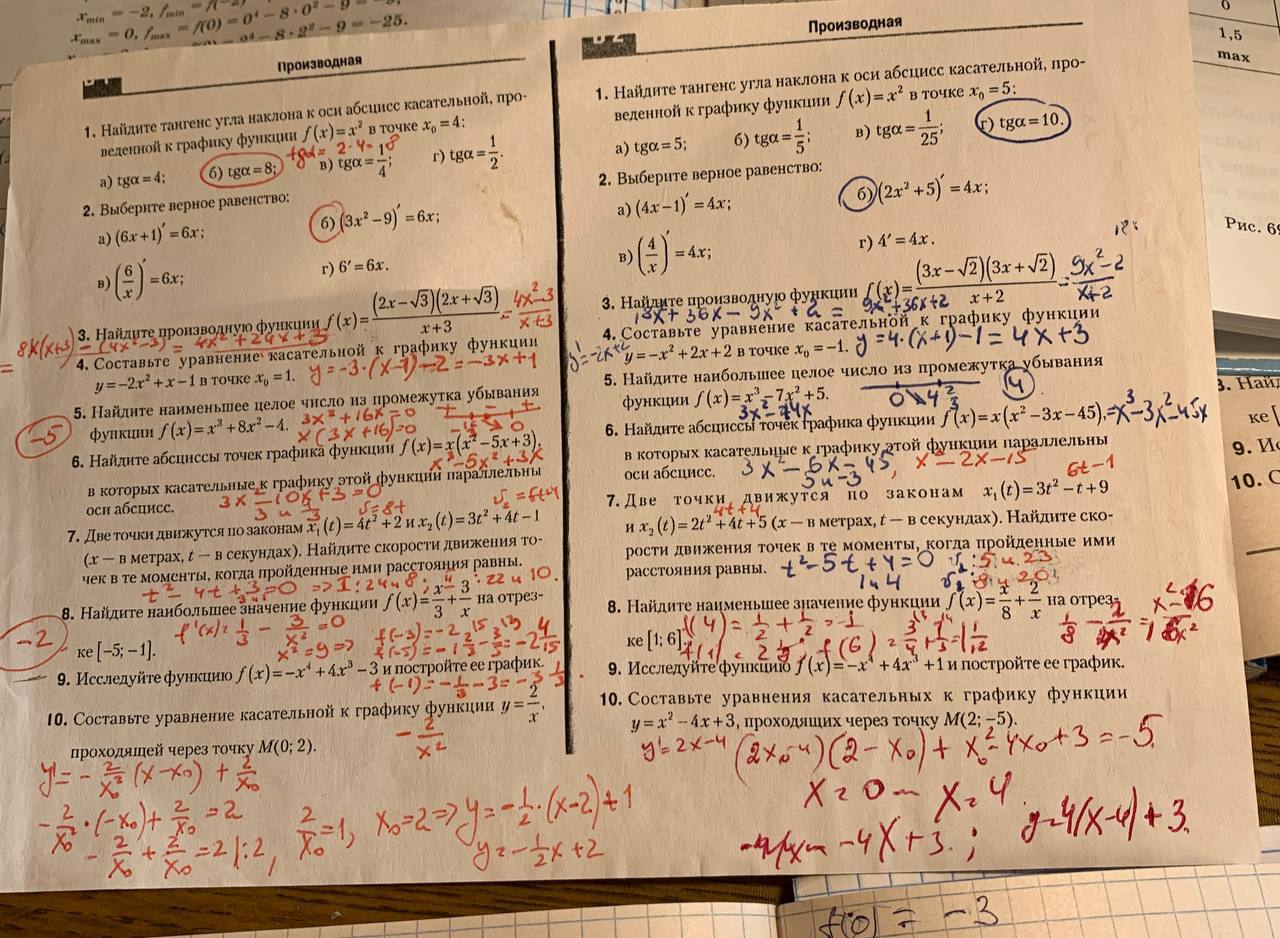 x_min = −2, f_min = f(−2)
x_max = 0, f_max = f(0) = 0⁴ − 8 · 0² − 9 = −9;
− 8 · 2² − 9 = −25.
Производная
1. Найдите тангенс угла наклона к оси абсцисс касательной, про-
веденной к графику функции f(x) = x² в точке x₀ = 4:
tgα = 2·4 = 8
а) tgα = 4; б) tgα = 8; в) tgα = 1/4; г) tgα = 1/2.
2. Выберите верное равенство:
а) (6x + 1)′ = 6x; б) (3x² − 9)′ = 6x;
в) (6/x)′ = 6x; г) 6′ = 6x.
3. Найдите производную функции f(x) = (2x − √3)(2x + √3)/(x + 3) = (4x² − 3)/(x + 3)
= 8x(x+3) − (4x² − 3) = 4x² + 24x + 3
4. Составьте уравнение касательной к графику функции
y = −2x² + x − 1 в точке x₀ = 1. y = −3·(x−1) − 2 = −3x + 1
5. Найдите наименьшее целое число из промежутка убывания
функции f(x) = x³ + 8x² − 4. 3x² + 16x = 0
x(3x + 16) = 0
−5
6. Найдите абсциссы точек графика функции f(x) = x(x² − 5x + 3),
x³ − 5x² + 3x
в которых касательные к графику этой функции параллельны
оси абсцисс. 3x² − 10x + 3 = 0
3 и 1/3
v = 8t v₂ = 6t+4
7. Две точки движутся по законам x₁(t) = 4t² + 2 и x₂(t) = 3t² + 4t − 1
(x — в метрах, t — в секундах). Найдите скорости движения то-
чек в те моменты, когда пройденные ими расстояния равны.
t² − 4t + 3 = 0 ⇒ I: 24 и 8; II: 22 и 10.
8. Найдите наибольшее значение функции f(x) = x/3 + 3/x на отрез-
ке [−5; −1]. f'(x) = 1/3 − 3/x² = 0
x² = 9 ⇒ f(−3) = −2
−2
9. Исследуйте функцию f(x) = −x⁴ + 4x³ − 3 и постройте ее график.
f(−1) = −1/3 − 3 = −3 1/3.
10. Составьте уравнение касательной к графику функции y = 2/x,
проходящей через точку M(0; 2). −2/x²
y = −2/x₀² (x − x₀) + 2/x₀
−2/x₀² · (−x₀) + 2/x₀ = 2
2/x₀ + 2/x₀ = 2 |:2, 2/x₀ = 1, x₀ = 2 ⇒ y = −1/2·(x−2) + 1
y = −1/2x + 2
Производная
1. Найдите тангенс угла наклона к оси абсцисс касательной, про-
веденной к графику функции f(x) = x² в точке x₀ = 5:
а) tgα = 5; б) tgα = 1/5; в) tgα = 1/25; г) tgα = 10.
2. Выберите верное равенство:
а) (4x − 1)′ = 4x; б) (2x² + 5)′ = 4x;
в) (4/x)′ = 4x; г) 4′ = 4x.
3. Найдите производную функции f(x) = (3x − √2)(3x + √2)/(x + 2) = (9x² − 2)/(x+2)
18x + 36x − 9x² + 2 = 9x² + 36x + 2
4. Составьте уравнение касательной к графику функции
y' = −2x+2
y = −x² + 2x + 2 в точке x₀ = −1. y = 4·(x+1) − 1 = 4x + 3
5. Найдите наибольшее целое число из промежутка убывания
функции f(x) = x³ − 7x² + 5. 0 4 2/3 4
3x² − 14x
6. Найдите абсциссы точек графика функции f(x) = x(x² − 3x − 45), = x³ − 3x² − 45x
в которых касательные к графику этой функции параллельны
оси абсцисс. 3x² − 6x − 45, x² − 2x − 15
5 и −3
6t − 1
7. Две точки движутся по законам x₁(t) = 3t² − t + 9
4t+4
и x₂(t) = 2t² + 4t + 5 (x — в метрах, t — в секундах). Найдите ско-
рости движения точек в те моменты, когда пройденные ими
расстояния равны. t² − 5t + 4 = 0 v₁: 5 и 23
1 и 4 v₂: 8 и 20
8. Найдите наименьшее значение функции f(x) = x/8 + 2/x на отрез-
ке [1; 6]. f(4) = 1/2 + 1/2 = 1
f(6) = 3/4 + 1/3 = 1 1/12
9. Исследуйте функцию f(x) = −x⁴ + 4x³ + 1 и постройте ее график.
10. Составьте уравнения касательных к графику функции
y = x² − 4x + 3, проходящих через точку M(2; −5).
y' = 2x − 4 (2x₀ − 4)(2 − x₀) + x₀² − 4x₀ + 3 = −5
x = 0 x = 4
−4x + 3; y = 4(x−4) + 3.
0
1,5
max
Рис. 69
3. Найд
ке [
9. Ис
10. С
f(0) = −3